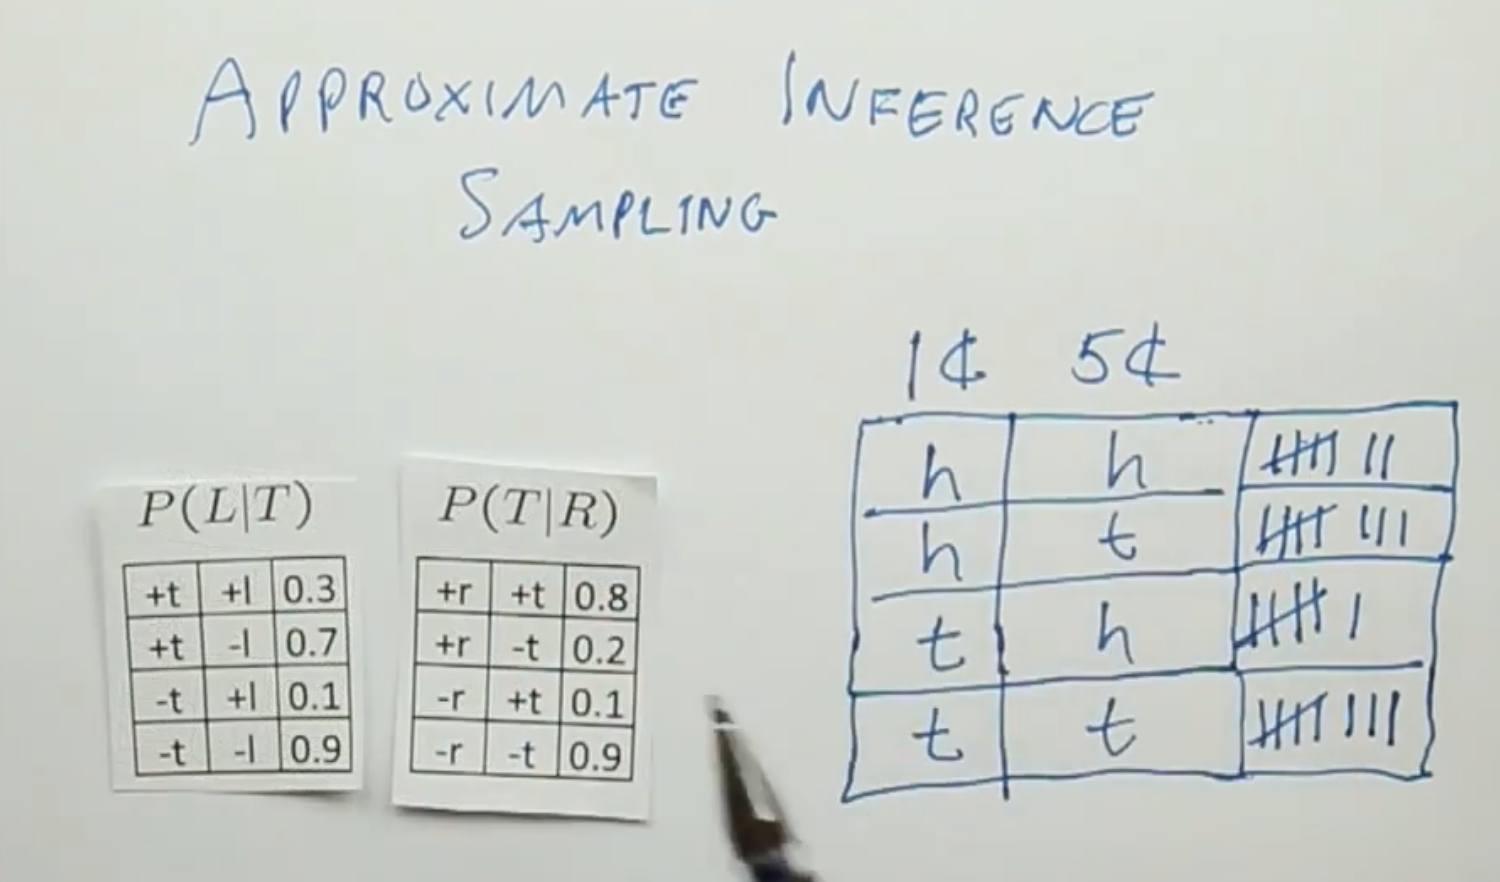 APPROXIMATE INFERENCE
SAMPLING
P(L|T)
+t +l 0.3
+t -l 0.7
-t +l 0.1
-t -l 0.9
P(T|R)
+r +t 0.8
+r -t 0.2
-r +t 0.1
-r -t 0.9
1¢ 5¢
h h 卌 ||
h t 卌 |||
t h 卌 |
t t 卌 |||